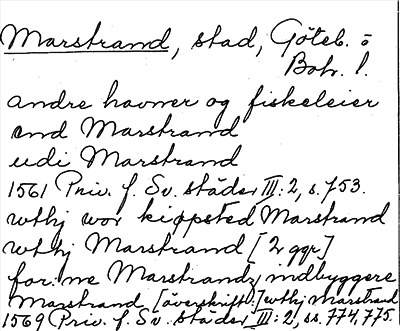 Marstrand, stad, Göteb. o
Boh. l.
andre havner og fiskeleier
end Marstrand
udi Marstrand
1561 Priv. f. Sv. städer III:2, s. 753.
wthj wor kiøpsted Marstrand
wthj Marstrand [2 ggr]
for:ne Marstrandz indbyggere
Marstrand [överskrift:] wthj Marstrand
1569 Priv. f. Sv. städer III:2, ss. 774, 775.